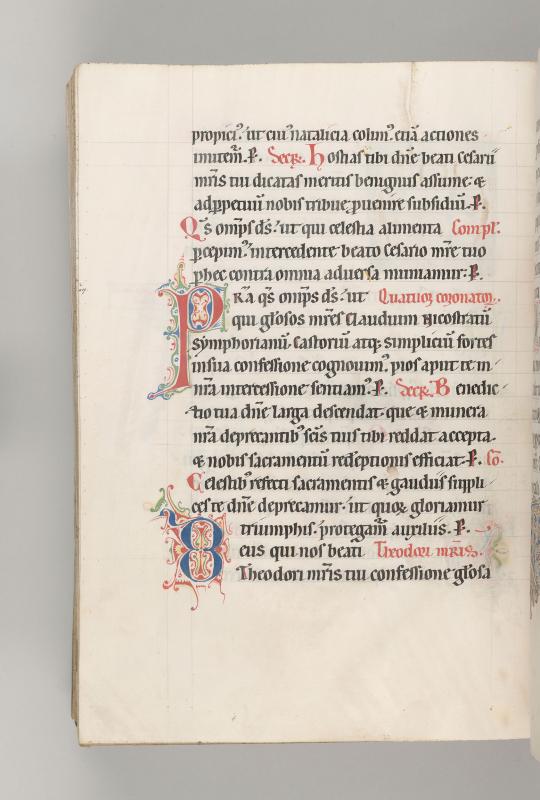 propici᾽. ut cui᾽ natalicia colim᾽. etiā actiones
imitem̄. P. Secr̄. Hostias tibi dn̄e beati cesarii
mr̄is tui dicatas meritis benignus assume: &
ad ꝑpetuū nobis tribue ꝓuenire subsidiū. P.
Qs̄ omp̄s ds̄. ut qui celestia alimenta Compl̄.
ꝑcepim᾽. intercedente beato cesario mr̄e tuo
ꝑ hec contra omnia aduersa muniamur: P.
PRĀ qs̄ omp̄s ds̄. ut Quatuor coronator̄.
qui gl̄osos mr̄es claudium nicostratū
symphorianū. castoriū atq; simpliciū fortes
in sua confessione cognouim᾽. pios aput te in
nr̄a intercessione sentiam᾽. P. Secr̄. Benedic-
tio tua dn̄e larga descendat. que & munera
nr̄a deprecantib᾽ sc̄is tuis tibi reddat accepta.
& nobis sacramentū redēptionis efficiat. P. Cō.
Celestib᾽ refecti sacramentis & gaudiis suppli-
ces te dn̄e deprecamur. ut quoꝝ gloriamur
triumphis. protegam̄ auxiliis. P.
Deus qui nos beati Theodori mr̄is.
Theodori mr̄is tui confessione gl̄osa